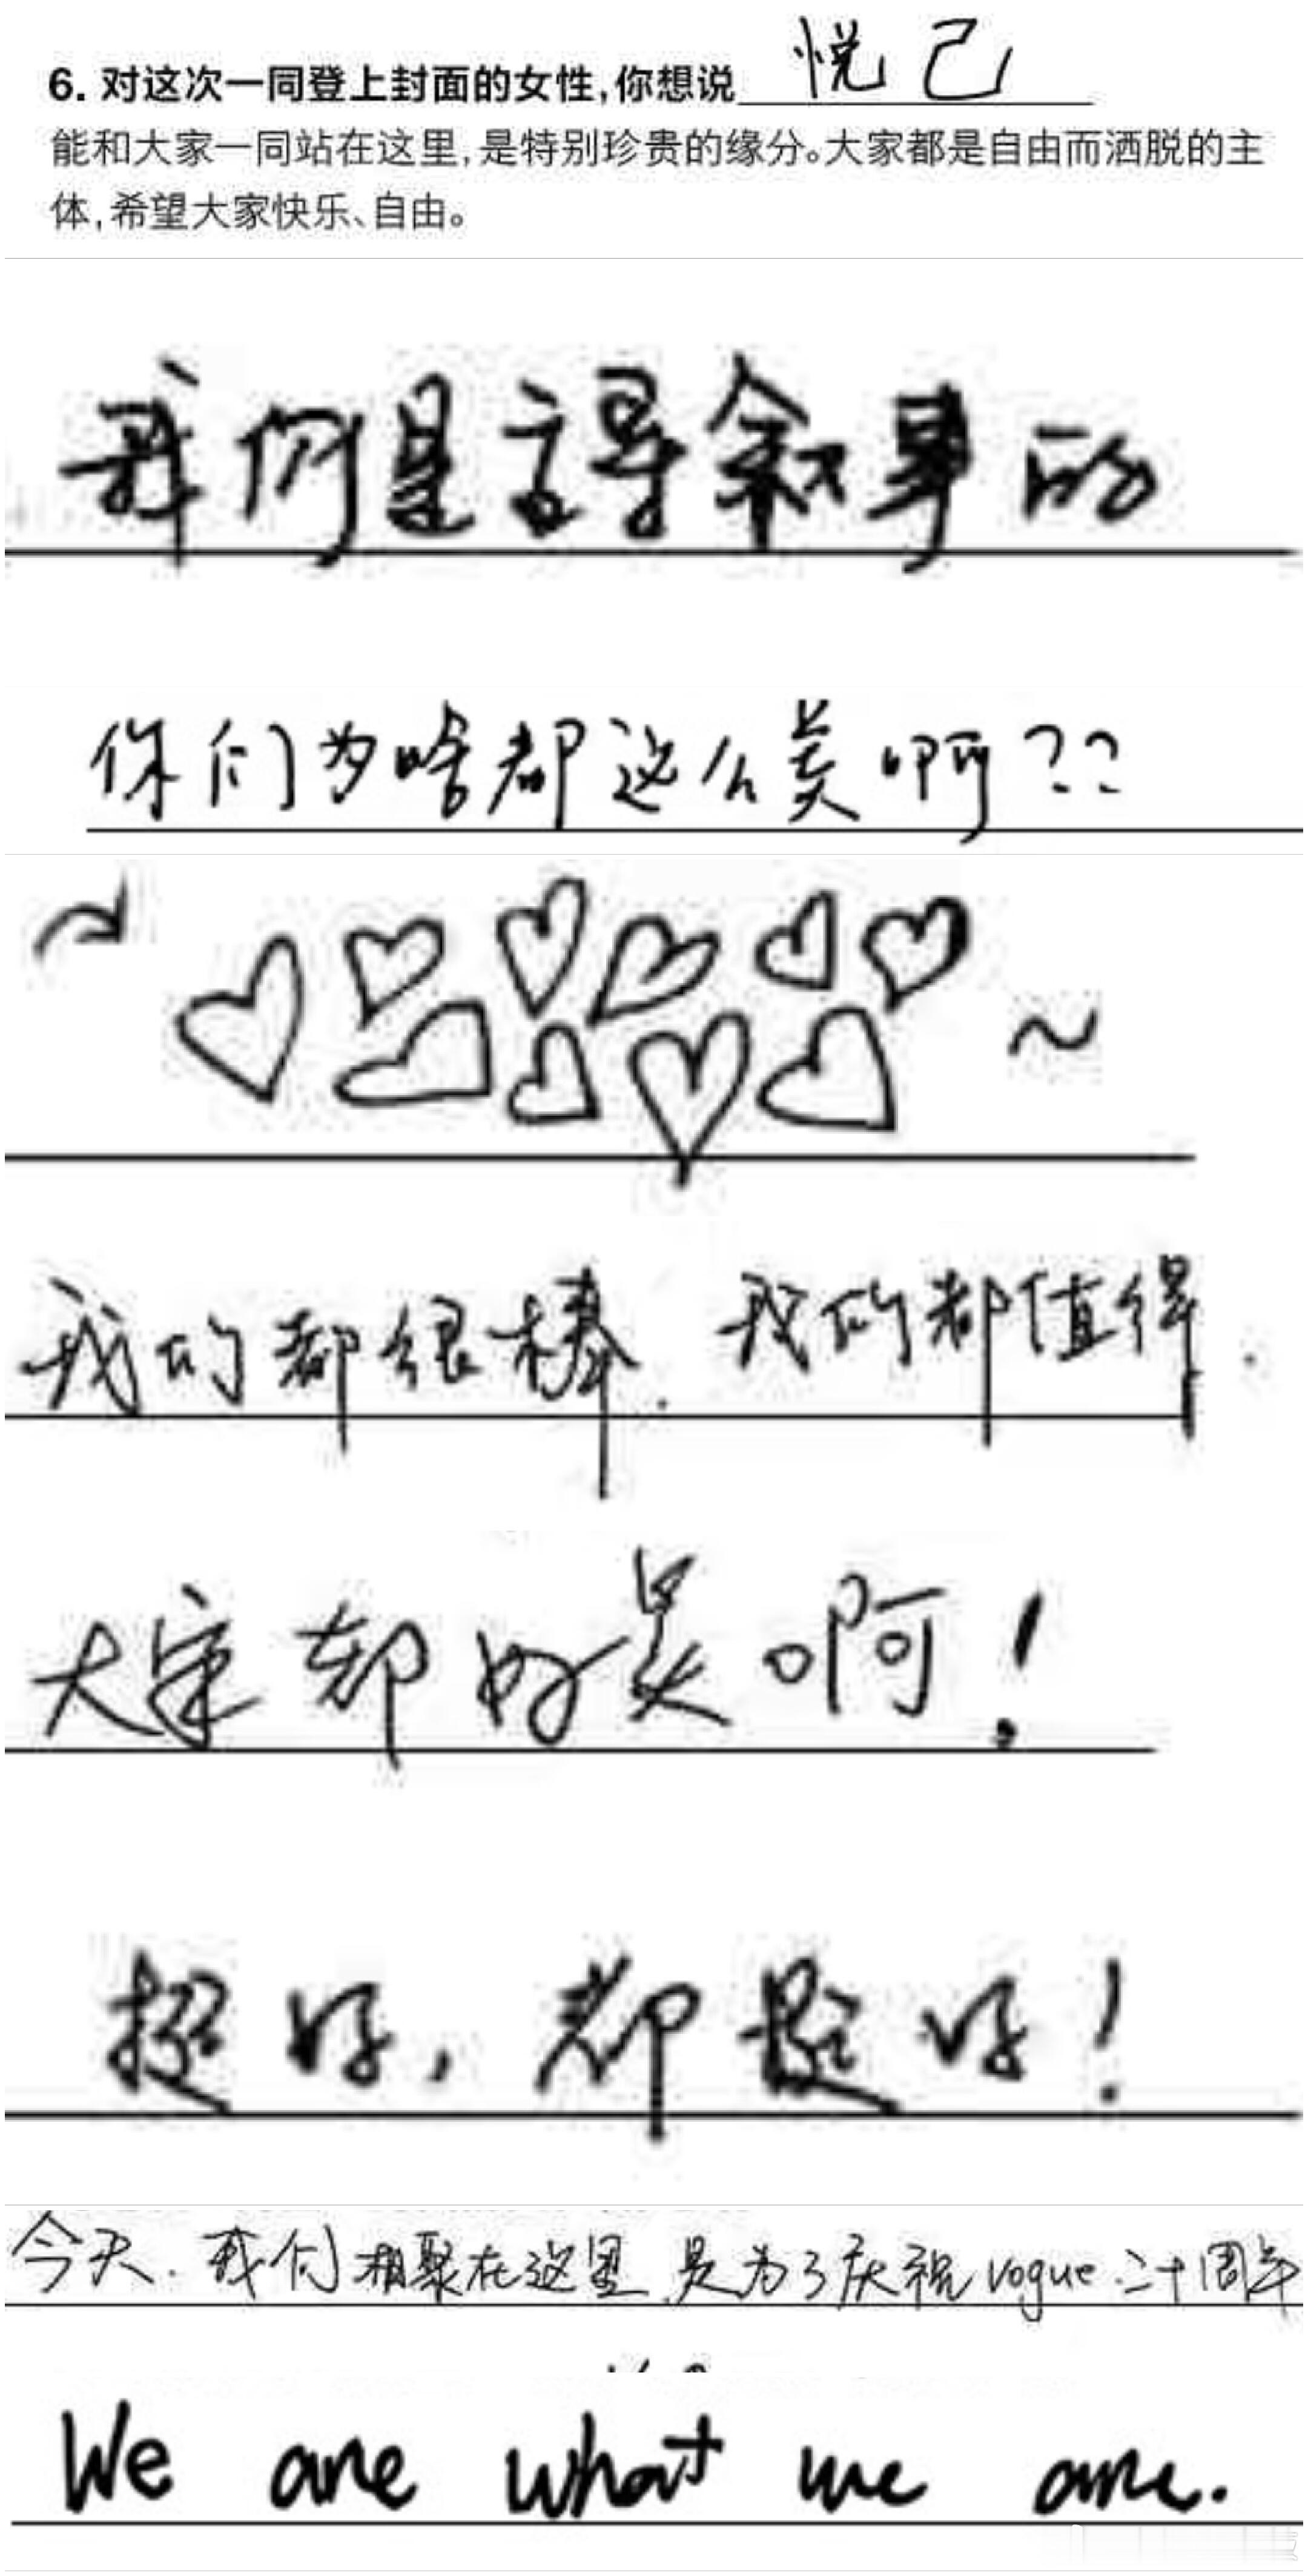 6. 对这次一同登上封面的女性,你想说 悦己
能和大家一同站在这里,是特别珍贵的缘分。大家都是自由而洒脱的主
体,希望大家快乐、自由。
我们是主导叙事的
你们为啥都这么美啊??
我们都很棒. 我们都值得.
大家都好美啊!
挺好,都挺好!
今天.我们相聚在这里,是为了庆祝vogue二十周年
We are what we are.